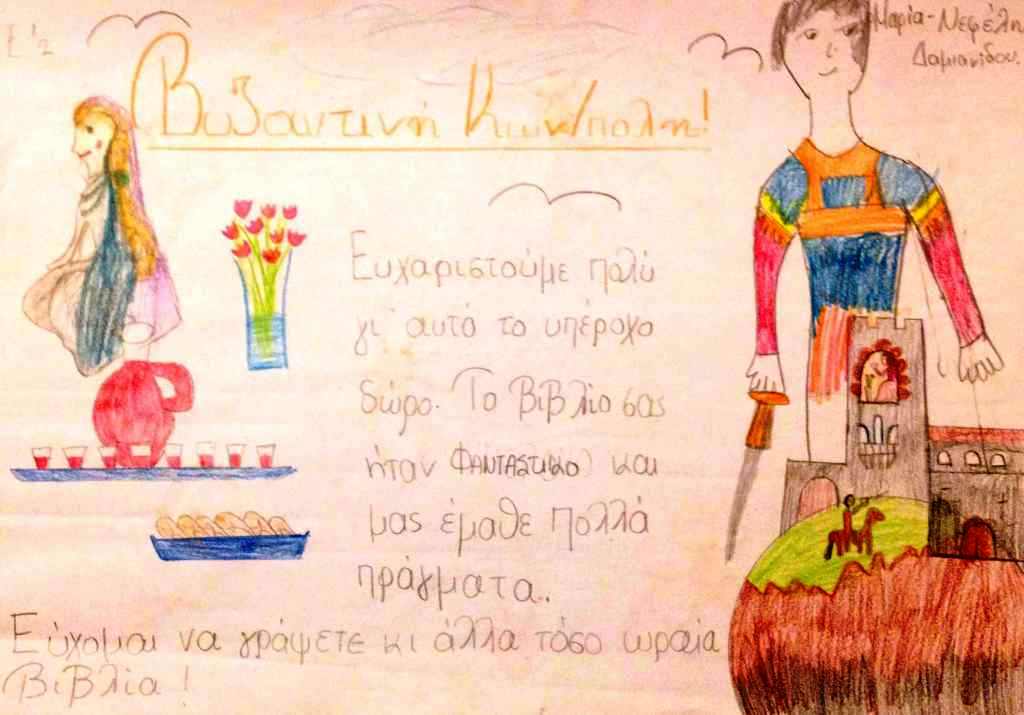 Ε'2
Μαρία-Νεφέλη
Δαμιανίδου.
Βυζαντινή Κων/πολη!
Ευχαριστούμε πολύ
γι' αυτό το υπέροχο
δώρο. Το βιβλίο σας
ήταν ΦΑΝΤΑΣΤΙΚΟ και
μας έμαθε πολλά
πράγματα..
Εύχομαι να γράψετε κι άλλα τόσο ωραία
βιβλία!